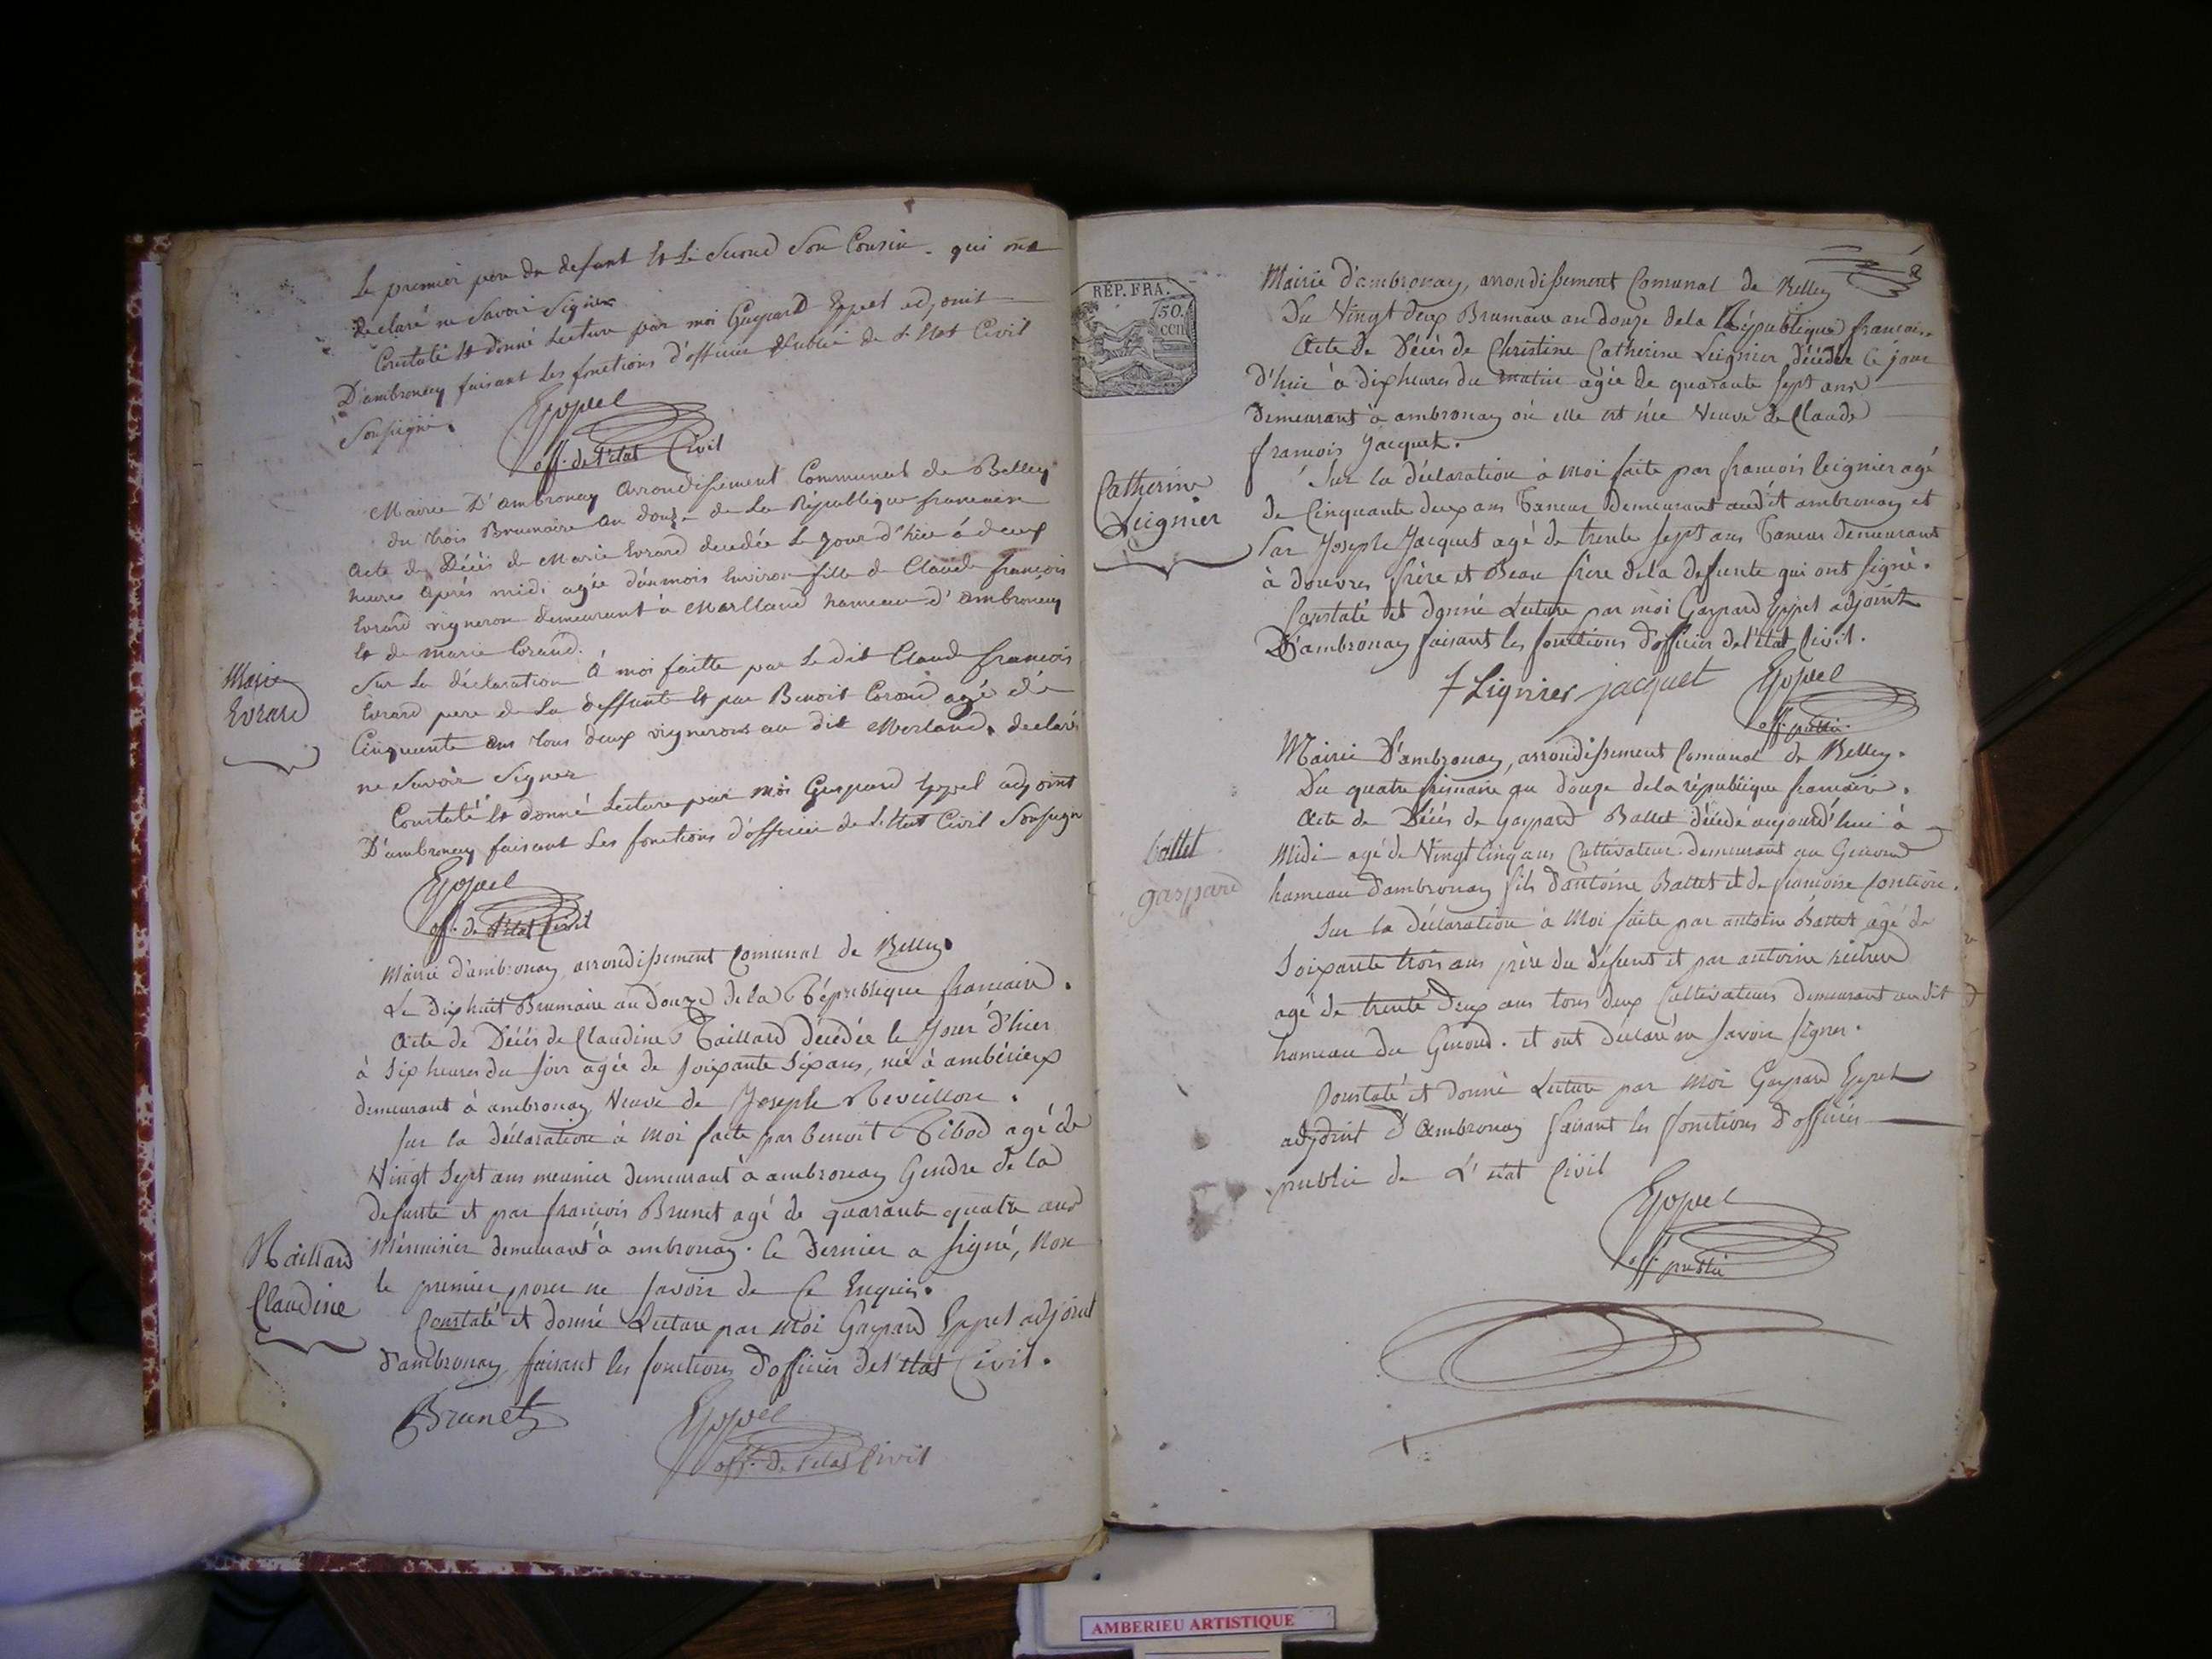 Le premier pere du defunt et Le Second Son Cousin - qui ont
declaré ne Savoir Signer
Constaté et donné Lecture par moi Gaspard Eppel adjoint
D'ambronay faisant les fonctions d'officier Public de L'Etat Civil
Soussigné.
Eppel
off. de l'état Civil
Mairie D'Ambronay Arrondissement Communal de Belley
du trois Brumaire an douze de La République francaise
Acte de Décés de Marie Evrard decedée Le Jour d'hier á deux
heures Aprés midi agée d'un mois Environ fille de Claude françois
Evrard vigneron demeurant à Marlland hameau d'Ambronay
et de marie
Marie
Evrard
Sur La déclaration À moi faitte par Le dit Claude françois
Evrard pere de La deffunte et par Benoit agé de
Cinquante ans tous deux vignerons au dit Merland. declaré
ne Savoir Signer
Constaté et donné Lecture par moi Gaspard Eppel adjoint
D'ambronay faisant Les fonctions d'officier de L'Etat Civil Soussigné
Eppel
off. de l'état Civil
Mairie d'ambronay arrondissement Comunal de Belley.
Le dix huit Brumaire an Douze de la République francaise.
Acte de Décés de Claudine Raillard décédée le Jour d'hier
à Six heures du soir agée de soixante Six ans, née à ambérieux
demeurant à ambronay Veuve de Joseph Reveillon.
Sur la déclaration à Moi faite par benoit Ribod agé de
Vingt Sept ans meunier demeurant à ambronay Gendre de la
defunte et par francois Brunet agé de quarante quatre ans
Raillard
Claudine
Ménuisier demeurant à ambronay. Ce dernier a signé, Non
le premier pour ne savoir de Ce Enquis.
Constaté et donné Lecture par Moi Gaspard Eppel adjoint
d'ambronay faisant les fonctions d'officier de l'état Civil.
Brunet
Eppel
off. de l'état Civil
REP. FRA.
50.
cen
8
Mairie d'ambronay, arrondissement Comunal de Belley
Du Vingt deux Brumaire an douze de la République francaise
Acte de Décès de Christine Catherine Leignier décédée Ce jour
d'hui à dix heures du matin agée de quarante sept ans
Demeurant à ambronay où elle est née Veuve de Claude
francois Jacquet.
Catherine
Leignier
Sur la déclaration à Moi faite par francois leignier agé
de Cinquante deux ans Taneur Demeurant audit ambronay et
Par Joseph Jacquet agé de trente sept ans Taneur demeurant
à douvres frère et Beau frère de la defunte qui ont signé.
Constaté et donné Lecture par moi Gaspard Eppel adjoint
D'ambronay faisant les fonctions d'officier de l'état Civil.
f Lignier jacquet Eppel
off. public
Mairie D'ambronay, arrondissement Comunal de Belley.
Du quatre frimaire an douze de la république francaise.
Acte de Décés de Gaspard Ballet décédé aujourd'hui à
ballet
gaspard
Midi agé de Vingt Cinq ans Cultivateur demeurant au Genoud
hameau d'ambronay fils d'antoine Ballet et de francoise
Sur la déclaration à Moi faite par antoine Ballet agé de
Soixante trois ans père du défunt et par antoine
agé de trente Deux ans tous deux Cultivateurs Demeurant audit
hameau du Genoud. et ont déclaré ne savoir signer.
Constaté et donné Lecture par Moi Gaspard Eppel
adjoint d'Ambronay faisant les fonctions d'officier
public de L'état Civil
Eppel
off. public
AMBERIEU ARTISTIQUE